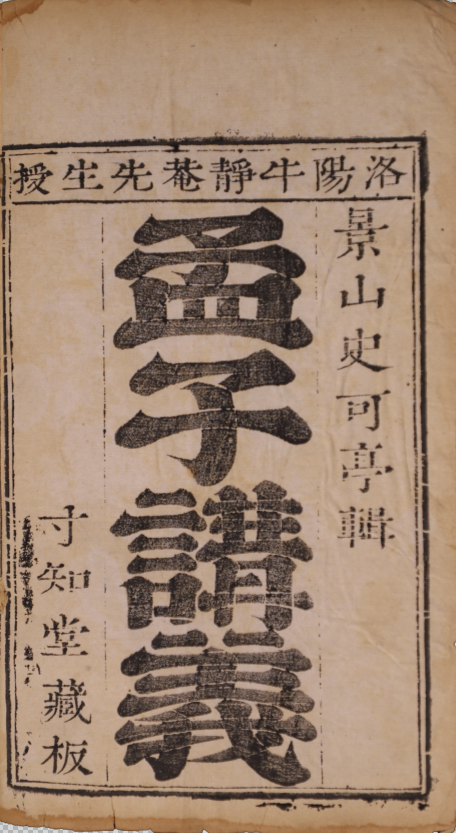 洛陽牛靜菴先生授
景山史可亭輯
孟子講義
寸知堂藏板